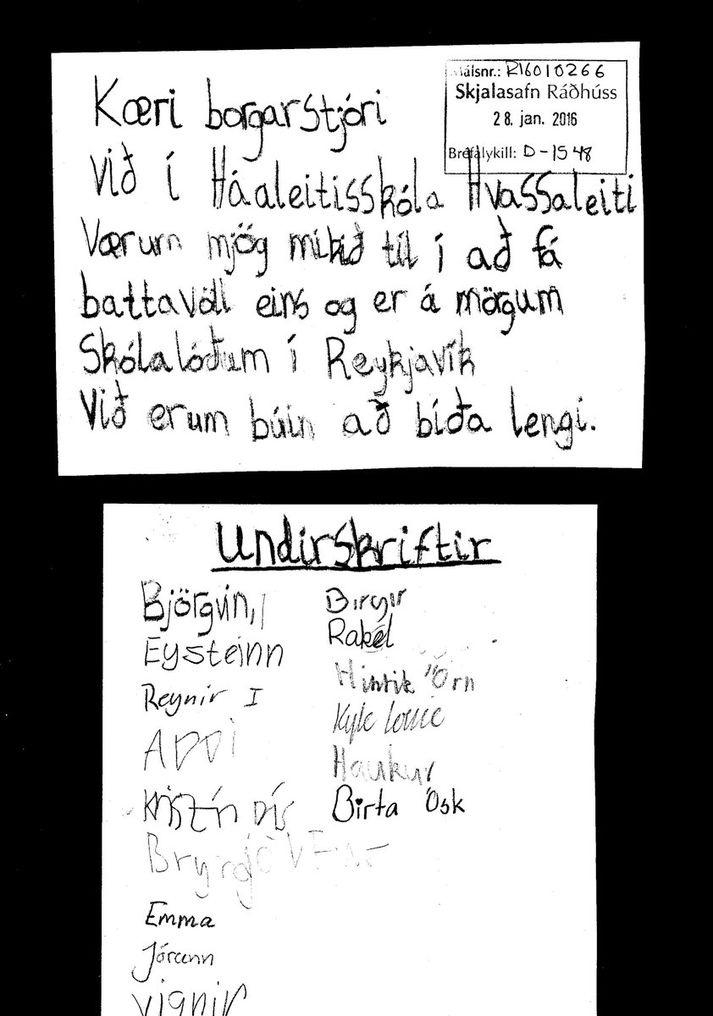 Málsnr.: R16010266
Skjalasafn Ráðhúss
28. jan. 2016
Bréfalykill: D-1548
Kæri borgarstjóri
Við í Háaleitisskóla Hvassaleiti
Værum mjög mikið til í að fá
battavöll eins og er á mörgum
Skólalóðum í Reykjavík
Við erum búin að bíða lengi.
Undirskriftir
Björgvin
Eysteinn
Reynir I
Addi
Kristín Dís
Emma
Jórunn
Vignir
Birgir
Rakel
Hinrik Örn
Kyle
Haukur
Birta Ósk